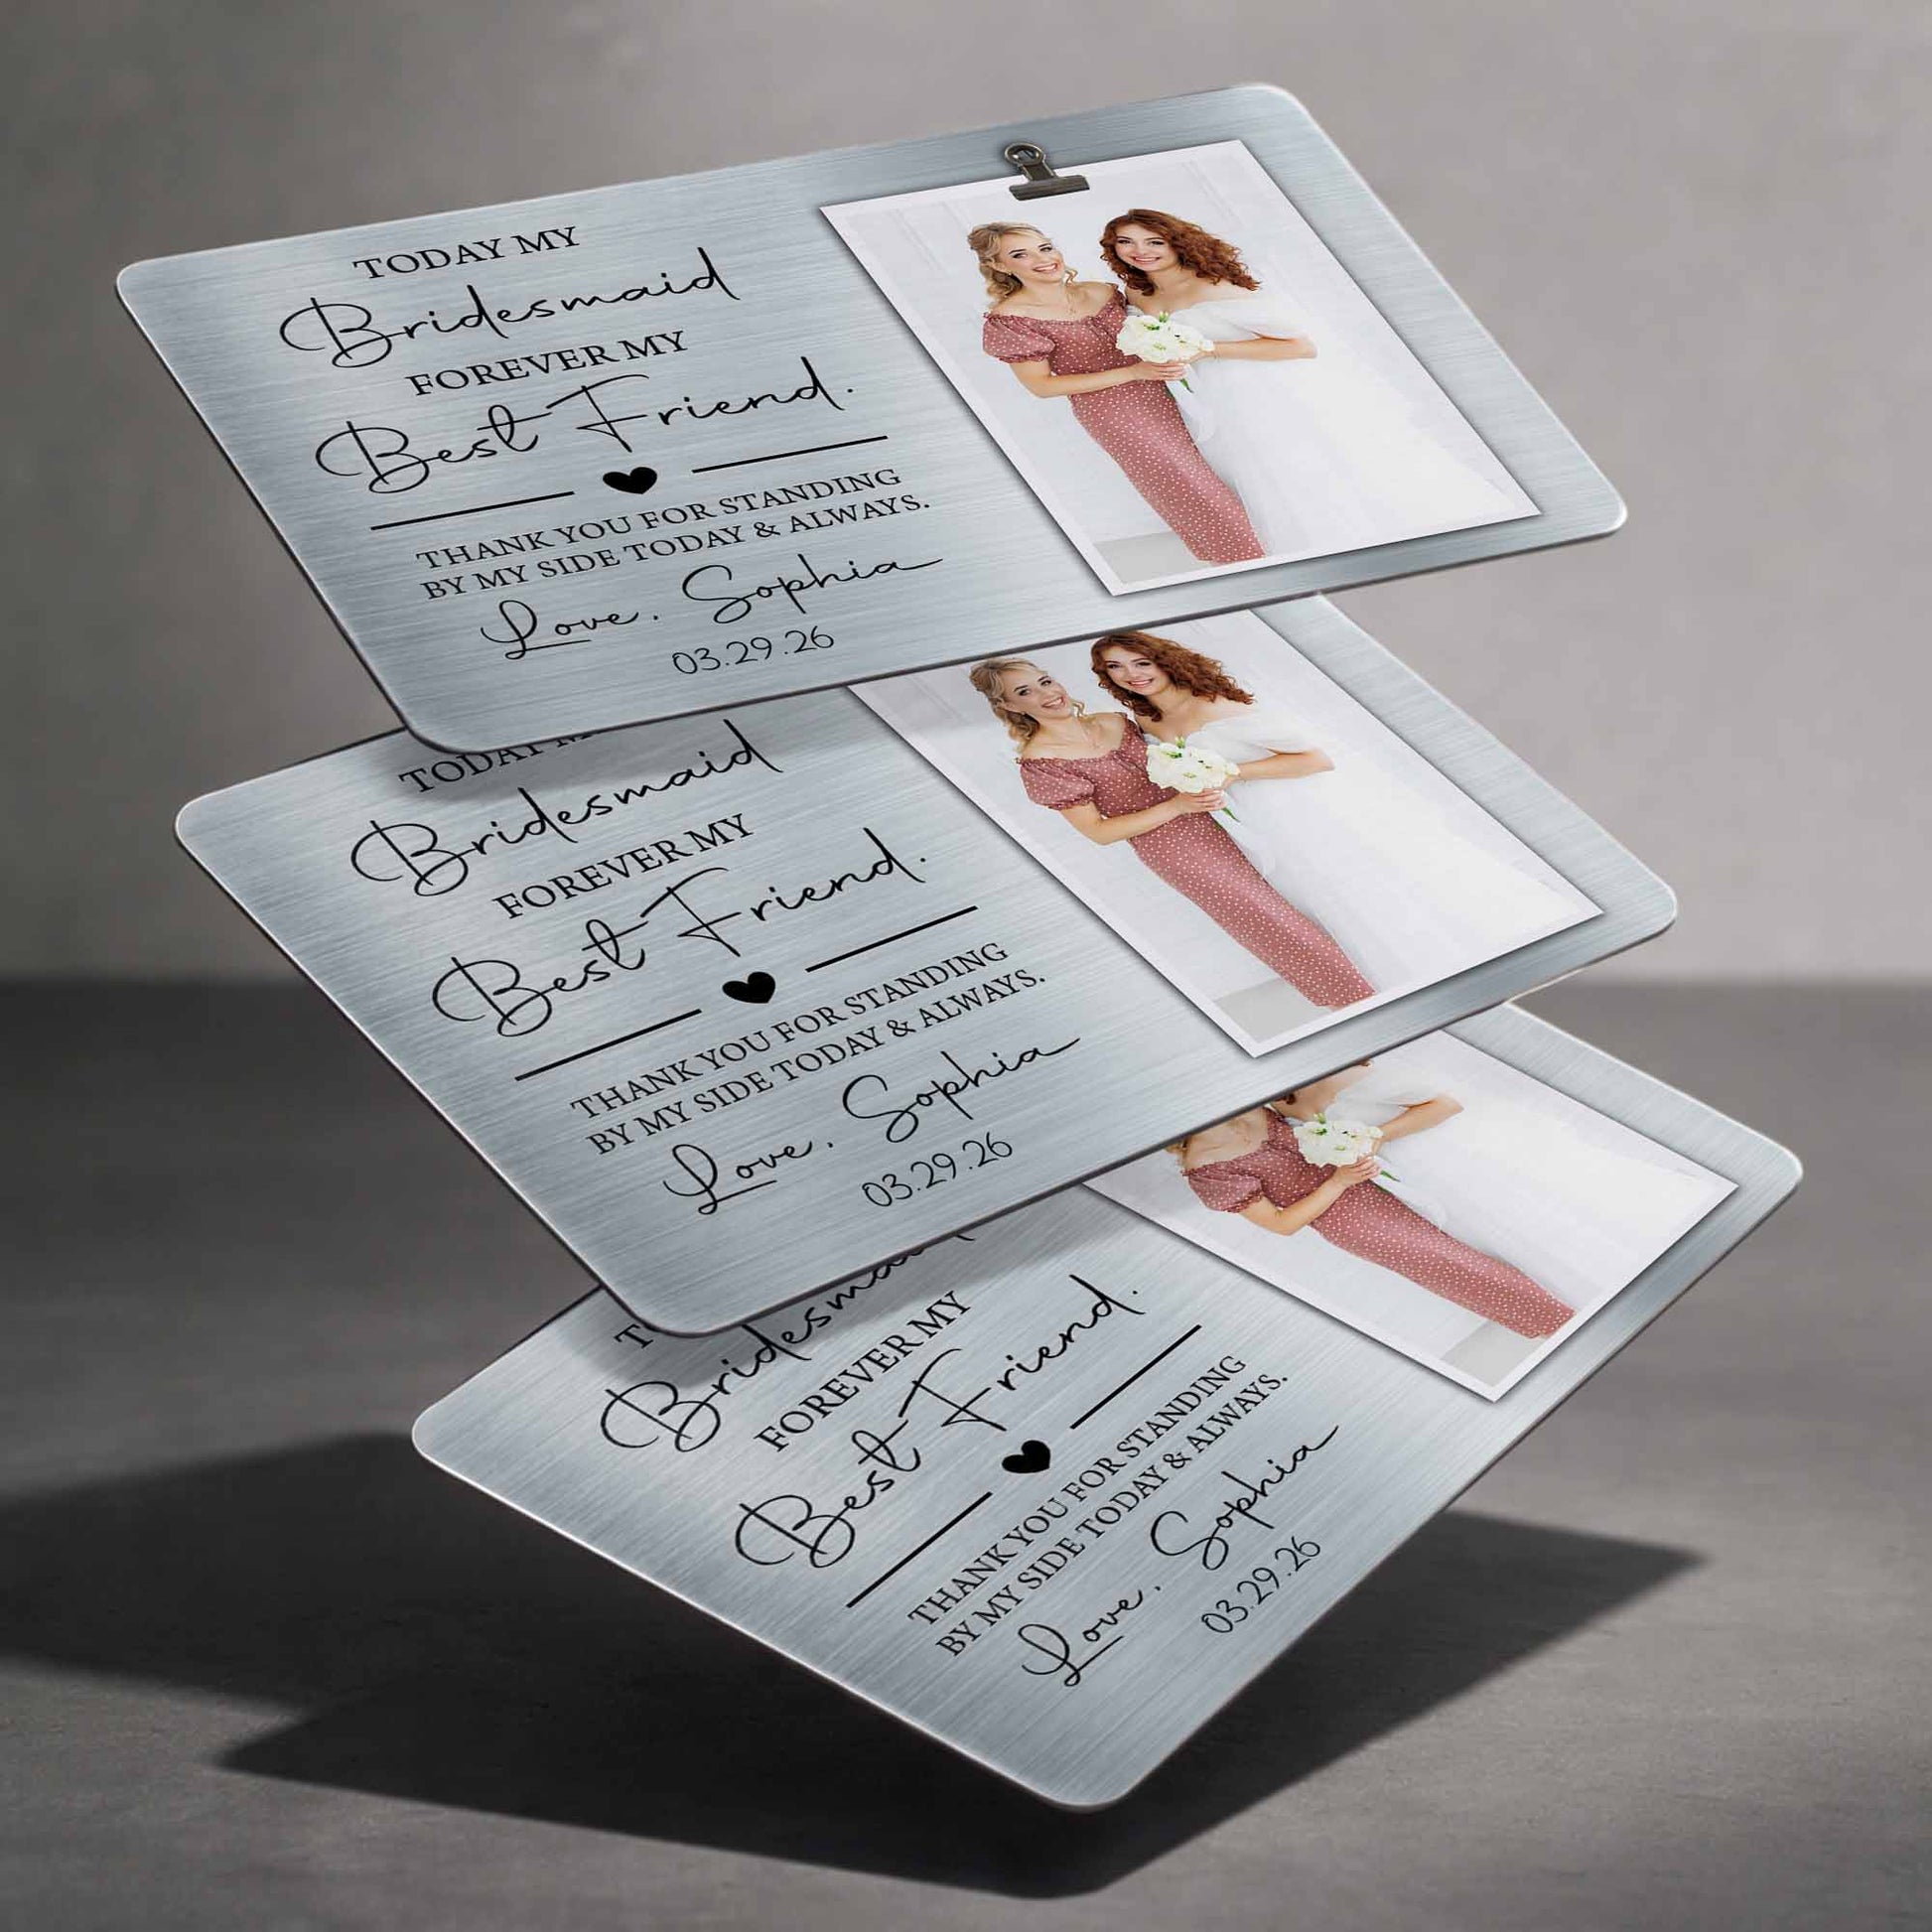 TODAY MY
Bridesmaid
FOREVER MY
Best Friend.
THANK YOU FOR STANDING
BY MY SIDE TODAY & ALWAYS.
Love, Sophia
03.29.26
TODAY M
Bridesmaid
FOREVER MY
Best Friend.
THANK YOU FOR STANDING
BY MY SIDE TODAY & ALWAYS.
Love, Sophia
03.29.26
T
Bridesmaid
FOREVER MY
Best Friend.
THANK YOU FOR STANDING
BY MY SIDE TODAY & ALWAYS.
Love, Sophia
03.29.26